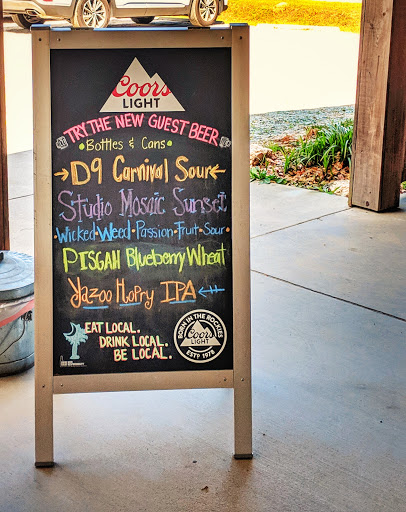 Coors
LIGHT
TRY THE NEW GUEST BEER
• Bottles & Cans •
→ D9 Carnival Sour ←
Studio Mosaic Sunset
• Wicked • Weed • Passion • Fruit • Sour •
PISGAH Blueberry Wheat
Yazoo Hoppy IPA ←
EAT LOCAL.
DRINK LOCAL.
BE LOCAL.
BORN IN THE ROCKIES
Coors
LIGHT
ESTD 1978